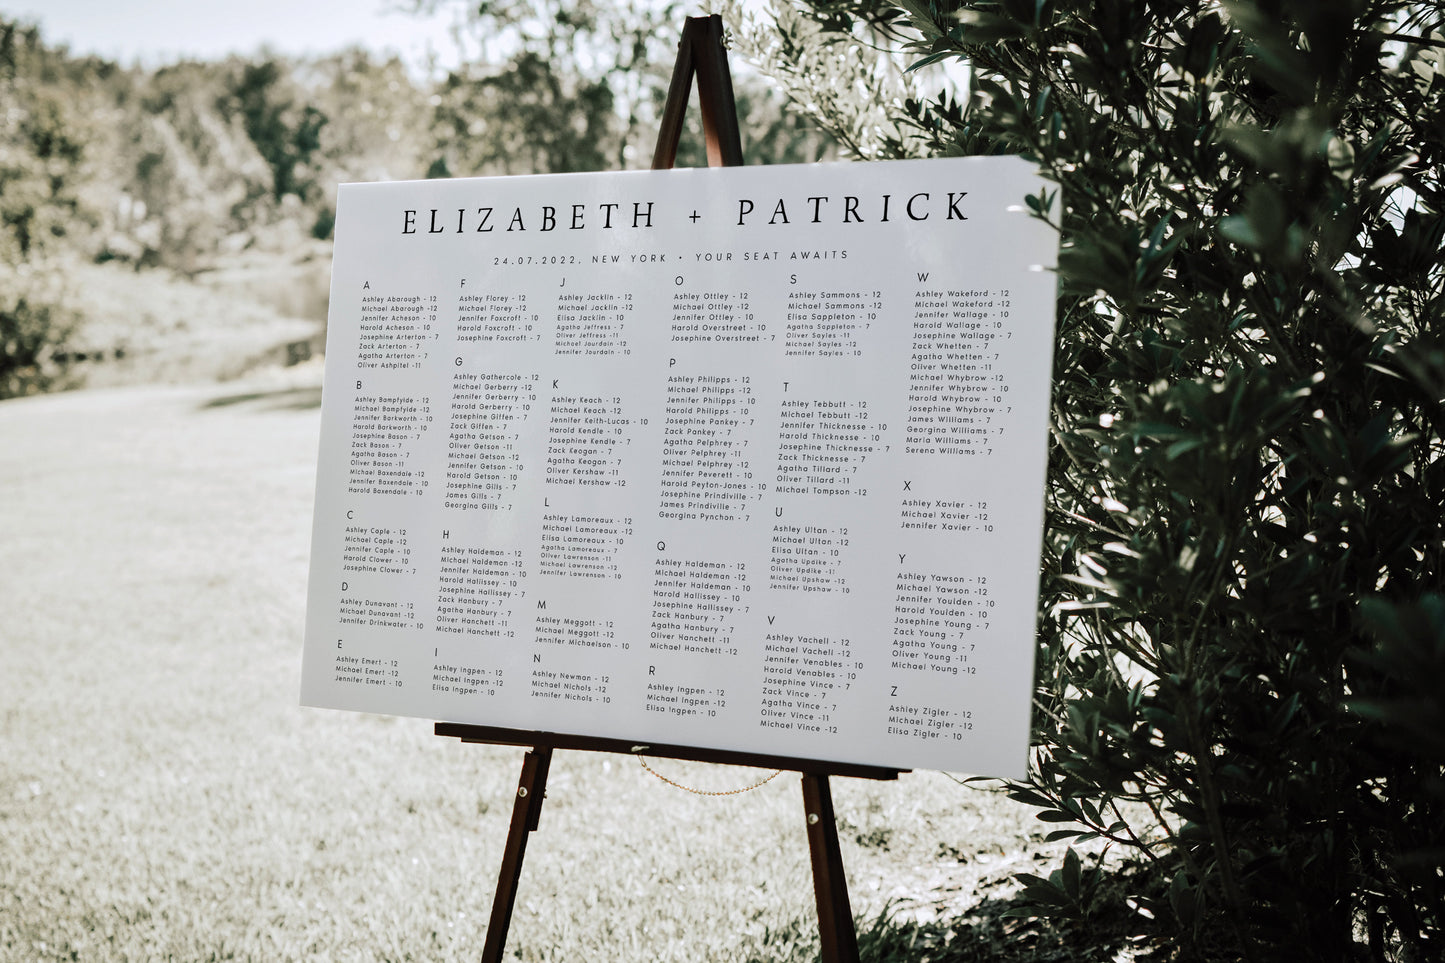 ELIZABETH + PATRICK
24.07.2022, NEW YORK • YOUR SEAT AWAITS
A
Ashley Abarough - 12
Michael Abarough -12
Jennifer Acheson - 10
Harold Acheson - 10
Josephine Arterton - 7
Zack Arterton - 7
Agatha Arterton - 7
Oliver Ashpitel -11
B
Ashley Bampfyide - 12
Michael Bampfyide -12
Jennifer Barkworth - 10
Harold Barkworth - 10
Josephine Bason - 7
Zack Bason - 7
Agatha Bason - 7
Oliver Bason -11
Michael Baxendale -12
Jennifer Baxendale - 10
Harold Baxendale - 10
C
Ashley Caple - 12
Michael Caple -12
Jennifer Caple - 10
Harold Clower - 10
Josephine Clower - 7
D
Ashley Dunavant - 12
Michael Dunavant -12
Jennifer Drinkwater - 10
E
Ashley Emert - 12
Michael Emert -12
Jennifer Emert - 10
F
Ashley Florey - 12
Michael Florey -12
Jennifer Foxcroft - 10
Harold Foxcroft - 10
Josephine Foxcroft - 7
G
Ashley Gathercole - 12
Michael Gerberry -12
Jennifer Gerberry - 10
Harold Gerberry - 10
Josephine Giffen - 7
Zack Giffen - 7
Agatha Getson - 7
Oliver Getson -11
Michael Getson -12
Jennifer Getson - 10
Harold Getson - 10
Josephine Gills - 7
James Gills - 7
Georgina Gills - 7
H
Ashley Haldeman - 12
Michael Haldeman -12
Jennifer Haldeman - 10
Harold Hallissey - 10
Josephine Hallissey - 7
Zack Hanbury - 7
Agatha Hanbury - 7
Oliver Hanchett -11
Michael Hanchett -12
I
Ashley Ingpen - 12
Michael Ingpen -12
Elisa Ingpen - 10
J
Ashley Jacklin - 12
Michael Jacklin -12
Elisa Jacklin - 10
Agatha Jeffress - 7
Oliver Jeffress -11
Michael Jourdain -12
Jennifer Jourdain - 10
K
Ashley Keach - 12
Michael Keach -12
Jennifer Keith-Lucas - 10
Harold Kendle - 10
Josephine Kendle - 7
Zack Keogan - 7
Agatha Keogan - 7
Oliver Kershaw -11
Michael Kershaw -12
L
Ashley Lamoreaux - 12
Michael Lamoreaux -12
Elisa Lamoreaux - 10
Agatha Lamoreaux - 7
Oliver Lawrenson -11
Michael Lawrenson -12
Jennifer Lawrenson - 10
M
Ashley Meggott - 12
Michael Meggott -12
Jennifer Michaelson - 10
N
Ashley Newman - 12
Michael Nichols -12
Jennifer Nichols - 10
O
Ashley Ottley - 12
Michael Ottley -12
Jennifer Ottley - 10
Harold Overstreet - 10
Josephine Overstreet - 7
P
Ashley Philipps - 12
Michael Philipps -12
Jennifer Philipps - 10
Harold Philipps - 10
Josephine Pankey - 7
Zack Pankey - 7
Agatha Pelphrey - 7
Oliver Pelphrey -11
Michael Pelphrey -12
Jennifer Peverett - 10
Harold Peyton-Jones - 10
Josephine Prindiville - 7
James Prindiville - 7
Georgina Pynchon - 7
Q
Ashley Haldeman - 12
Michael Haldeman -12
Jennifer Haldeman - 10
Harold Hallissey - 10
Josephine Hallissey - 7
Zack Hanbury - 7
Agatha Hanbury - 7
Oliver Hanchett -11
Michael Hanchett -12
R
Ashley Ingpen - 12
Michael Ingpen -12
Elisa Ingpen - 10
S
Ashley Sammons - 12
Michael Sammons -12
Elisa Sappleton - 10
Agatha Sappleton - 7
Oliver Sayles -11
Michael Sayles -12
Jennifer Sayles - 10
T
Ashley Tebbutt - 12
Michael Tebbutt -12
Jennifer Thicknesse - 10
Harold Thicknesse - 10
Josephine Thicknesse - 7
Zack Thicknesse - 7
Agatha Tillard - 7
Oliver Tillard -11
Michael Tompson -12
U
Ashley Ultan - 12
Michael Ultan -12
Elisa Ultan - 10
Agatha Updike - 7
Oliver Updike -11
Michael Upshaw -12
Jennifer Upshaw - 10
V
Ashley Vachell - 12
Michael Vachell -12
Jennifer Venables - 10
Harold Venables - 10
Josephine Vince - 7
Zack Vince - 7
Agatha Vince - 7
Oliver Vince -11
Michael Vince -12
W
Ashley Wakeford - 12
Michael Wakeford -12
Jennifer Wallage - 10
Harold Wallage - 10
Josephine Wallage - 7
Zack Whetten - 7
Agatha Whetten - 7
Oliver Whetten -11
Michael Whybrow -12
Jennifer Whybrow - 10
Harold Whybrow - 10
Josephine Whybrow - 7
James Williams - 7
Georgina Williams - 7
Maria Williams - 7
Serena Williams - 7
X
Ashley Xavier - 12
Michael Xavier -12
Jennifer Xavier - 10
Y
Ashley Yawson - 12
Michael Yawson -12
Jennifer Youlden - 10
Harold Youlden - 10
Josephine Young - 7
Zack Young - 7
Agatha Young - 7
Oliver Young -11
Michael Young -12
Z
Ashley Zigler - 12
Michael Zigler -12
Elisa Zigler - 10